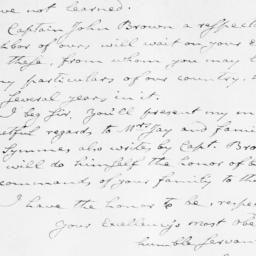 ve not learned.
Captain John Brown a respecta
hbor of ours will wait on your E
these, from whom you may l
ny particulars of our country,
several years in it.
I beg Sir, You'll present my m
ctful regards to Mrs. Jay and fami
Symmes also writes by Capt. Bro
will do himself the honor of b
commands of your family to th
I have the honor to be, respec
Your Excellency's most Obe
humble Servan